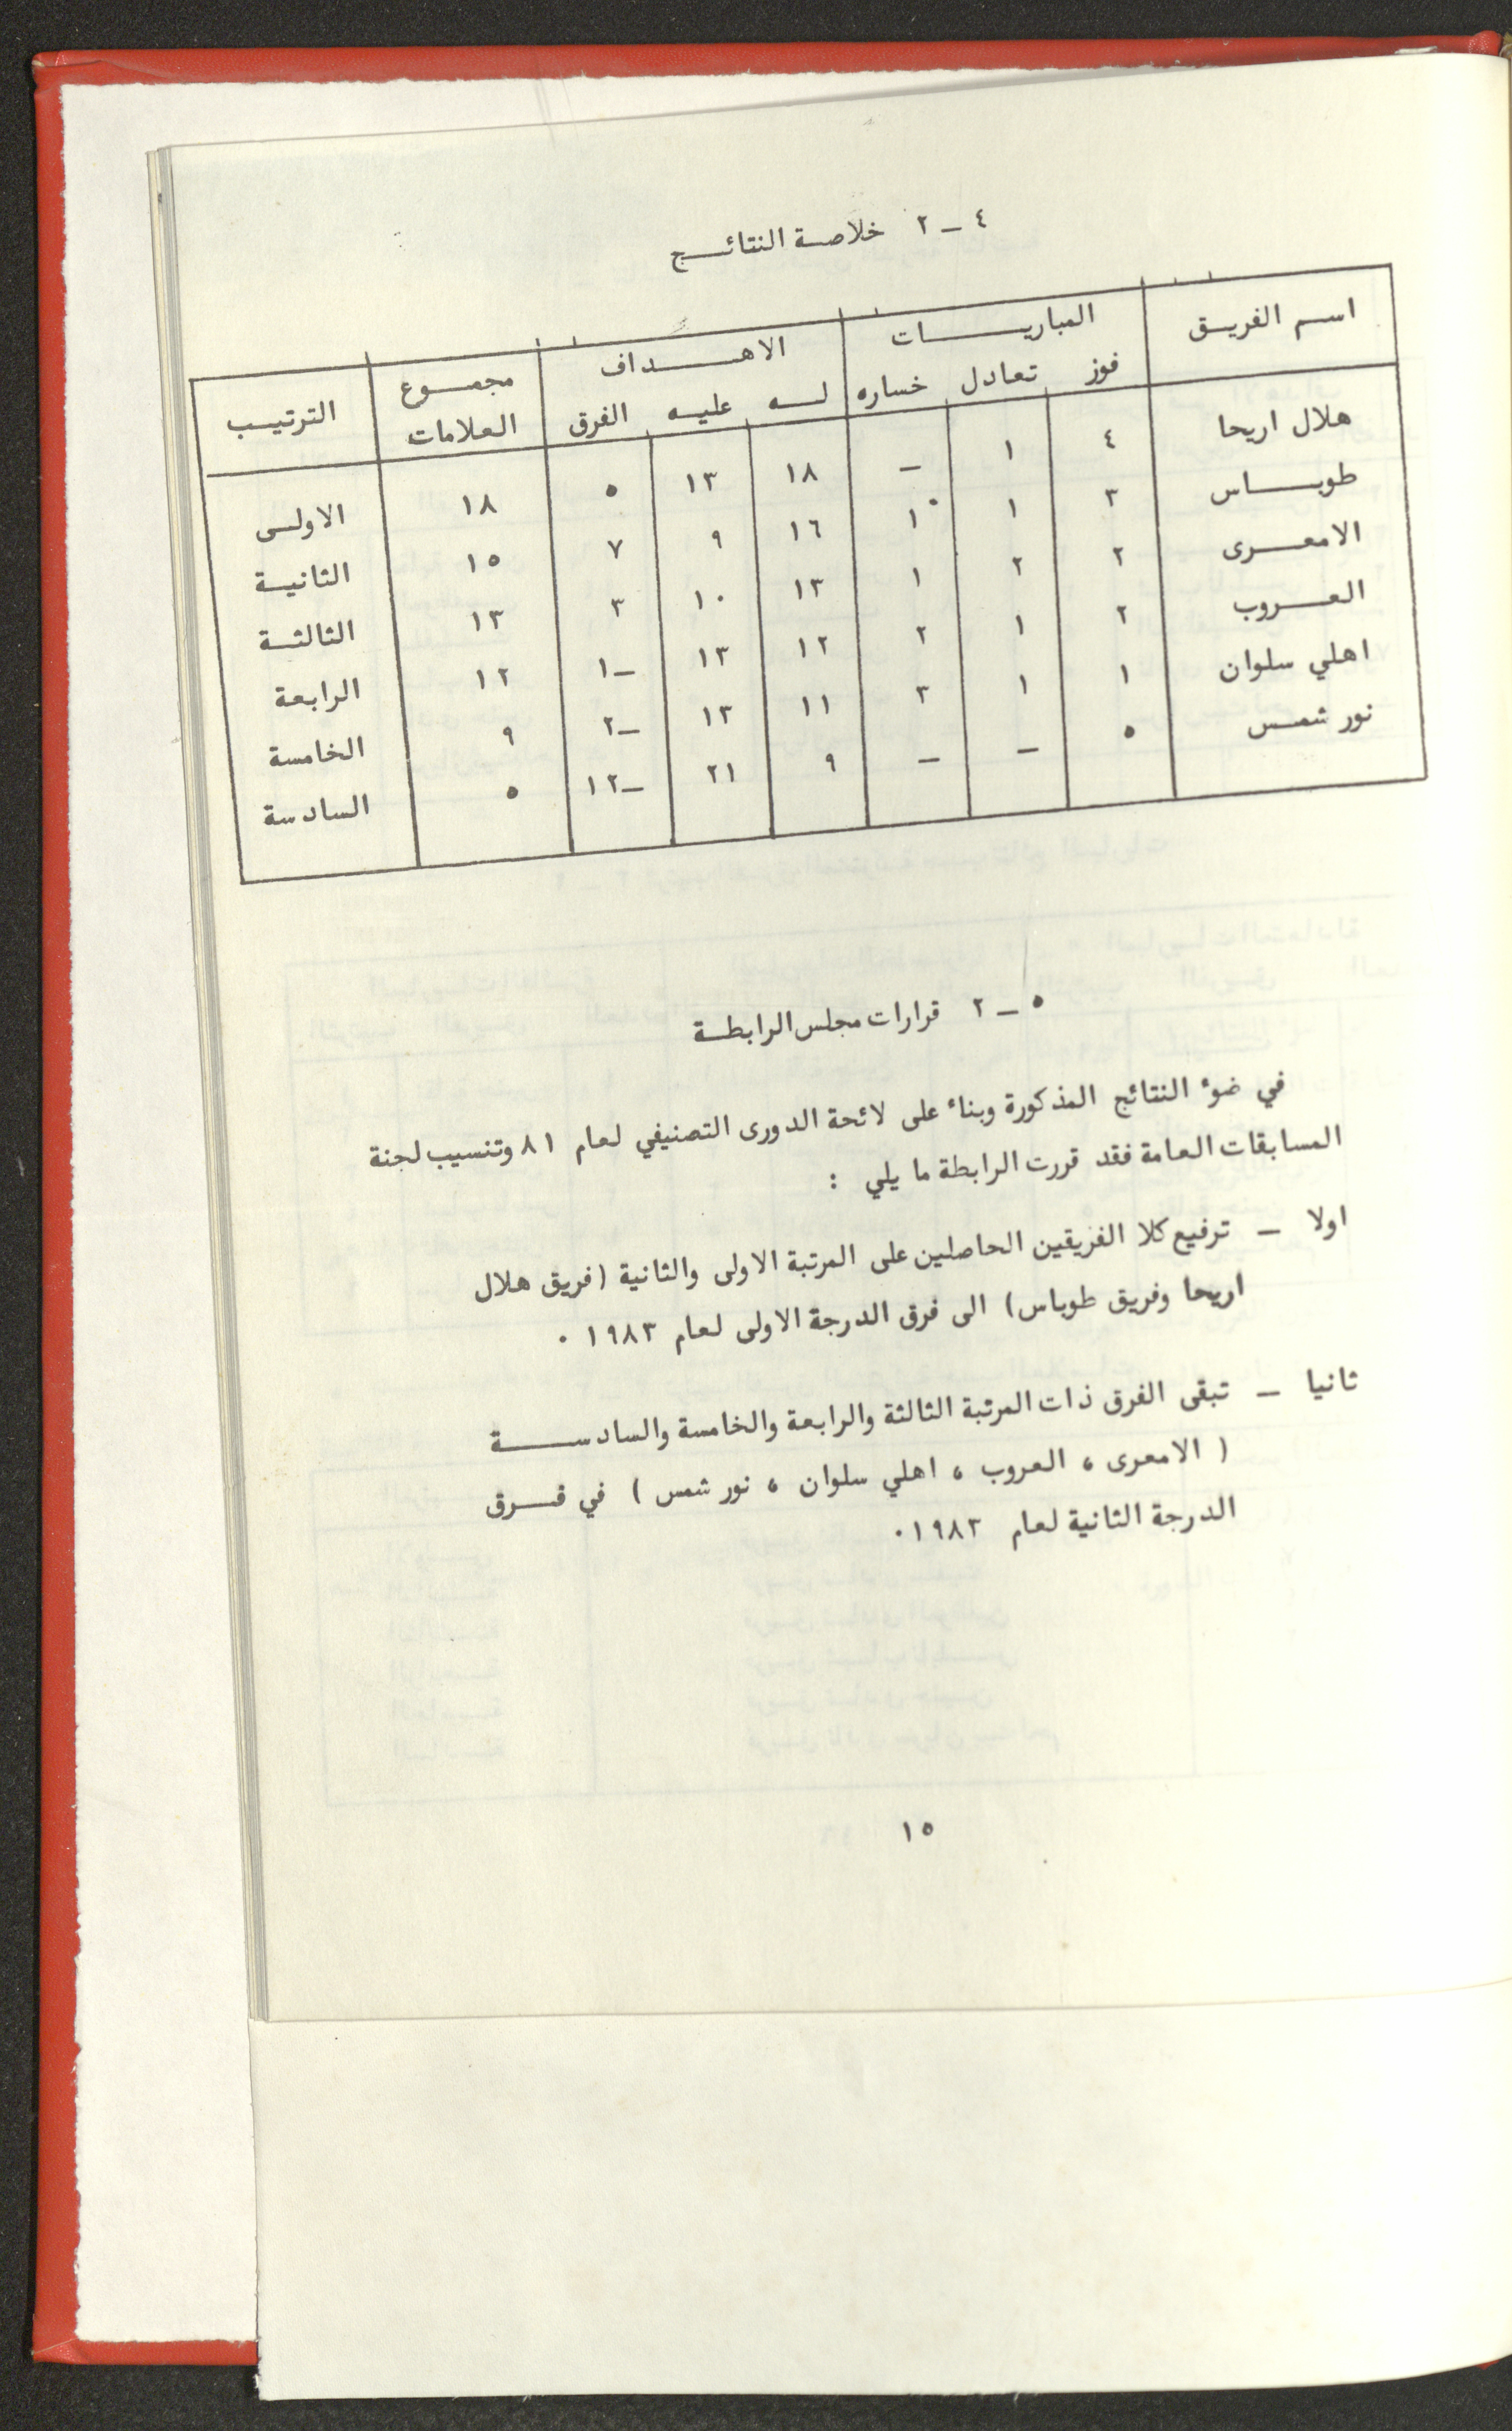 ٤ – ٢ خلاصة النتائج
اسم الفريق المباريات الاهداف مجموع العلامات الترتيب
فوز تعادل خساره له عليه الفرق
هلال اريحا ٤ ١ – ١٨ ١٣ ٥ ١٨ الاولى
طوباس ٣ ١ ١ ١٦ ٩ ٧ ١٥ الثانية
الامعرى ٢ ٢ ١ ١٣ ١٠ ٣ ١٣ الثالثة
العروب ٢ ١ ٢ ١٢ ١٣ –١ ١٢ الرابعة
اهلي سلوان ١ ١ ٣ ١١ ١٣ –٢ ٩ الخامسة
نور شمس ٥ – – ٩ ٢١ –١٢ ٥ السادسة
٥ – ٢ قرارات مجلس الرابطة
في ضوء النتائج المذكورة وبناء على لائحة الدورى التصنيفي لعام ٨١ وتنسيب لجنة
المسابقات العامة فقد قررت الرابطة ما يلي :
اولا – ترفيع كلا الفريقين الحاصلين على المرتبة الاولى والثانية (فريق هلال
اريحا وفريق طوباس) الى فرق الدرجة الاولى لعام ١٩٨٣ .
ثانيا – تبقى الفرق ذات المرتبة الثالثة والرابعة والخامسة والسادسة
( الامعرى ، العروب ، اهلي سلوان ، نور شمس ) في فرق
الدرجة الثانية لعام ١٩٨٣.
١٥